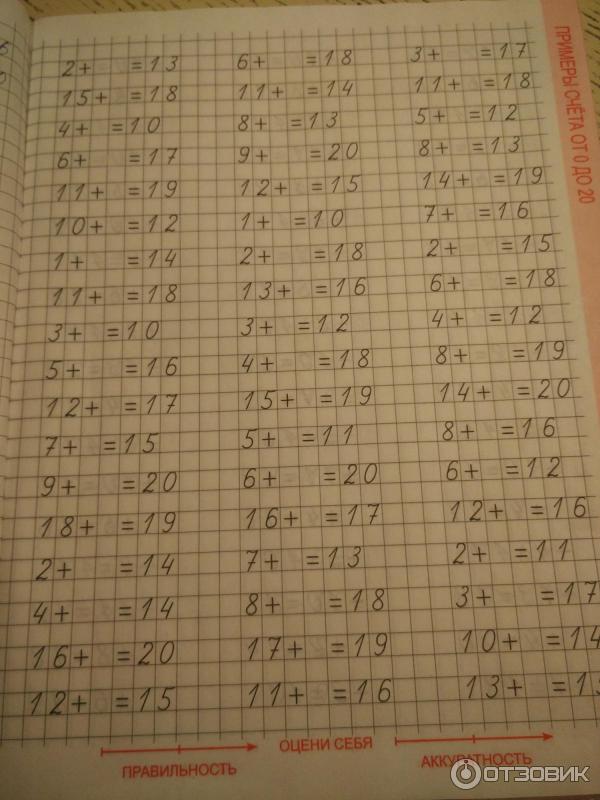 ПРИМЕРЫ СЧЁТА ОТ 0 ДО 20
2+ =13 6+ =18 3+ =17
15+ =18 11+ =14 11+ =18
4+ =10 8+ =13 5+ =12
6+ =17 9+ =20 8+ =13
11+ =19 12+ =15 14+ =19
10+ =12 1+ =10 7+ =16
1+ =14 2+ =18 2+ =15
11+ =18 13+ =16 6+ =18
3+ =10 3+ =12 4+ =12
5+ =16 4+ =18 8+ =19
12+ =17 15+ =19 14+ =20
7+ =15 5+ =11 8+ =16
9+ =20 6+ =20 6+ =12
18+ =19 16+ =17 12+ =16
2+ =14 7+ =13 2+ =11
4+ =14 8+ =18 3+ =17
16+ =20 17+ =19 10+ =14
12+ =15 11+ =16 13+
ОЦЕНИ СЕБЯ
ПРАВИЛЬНОСТЬ АККУРАТНОСТЬ
ОТЗОВИК